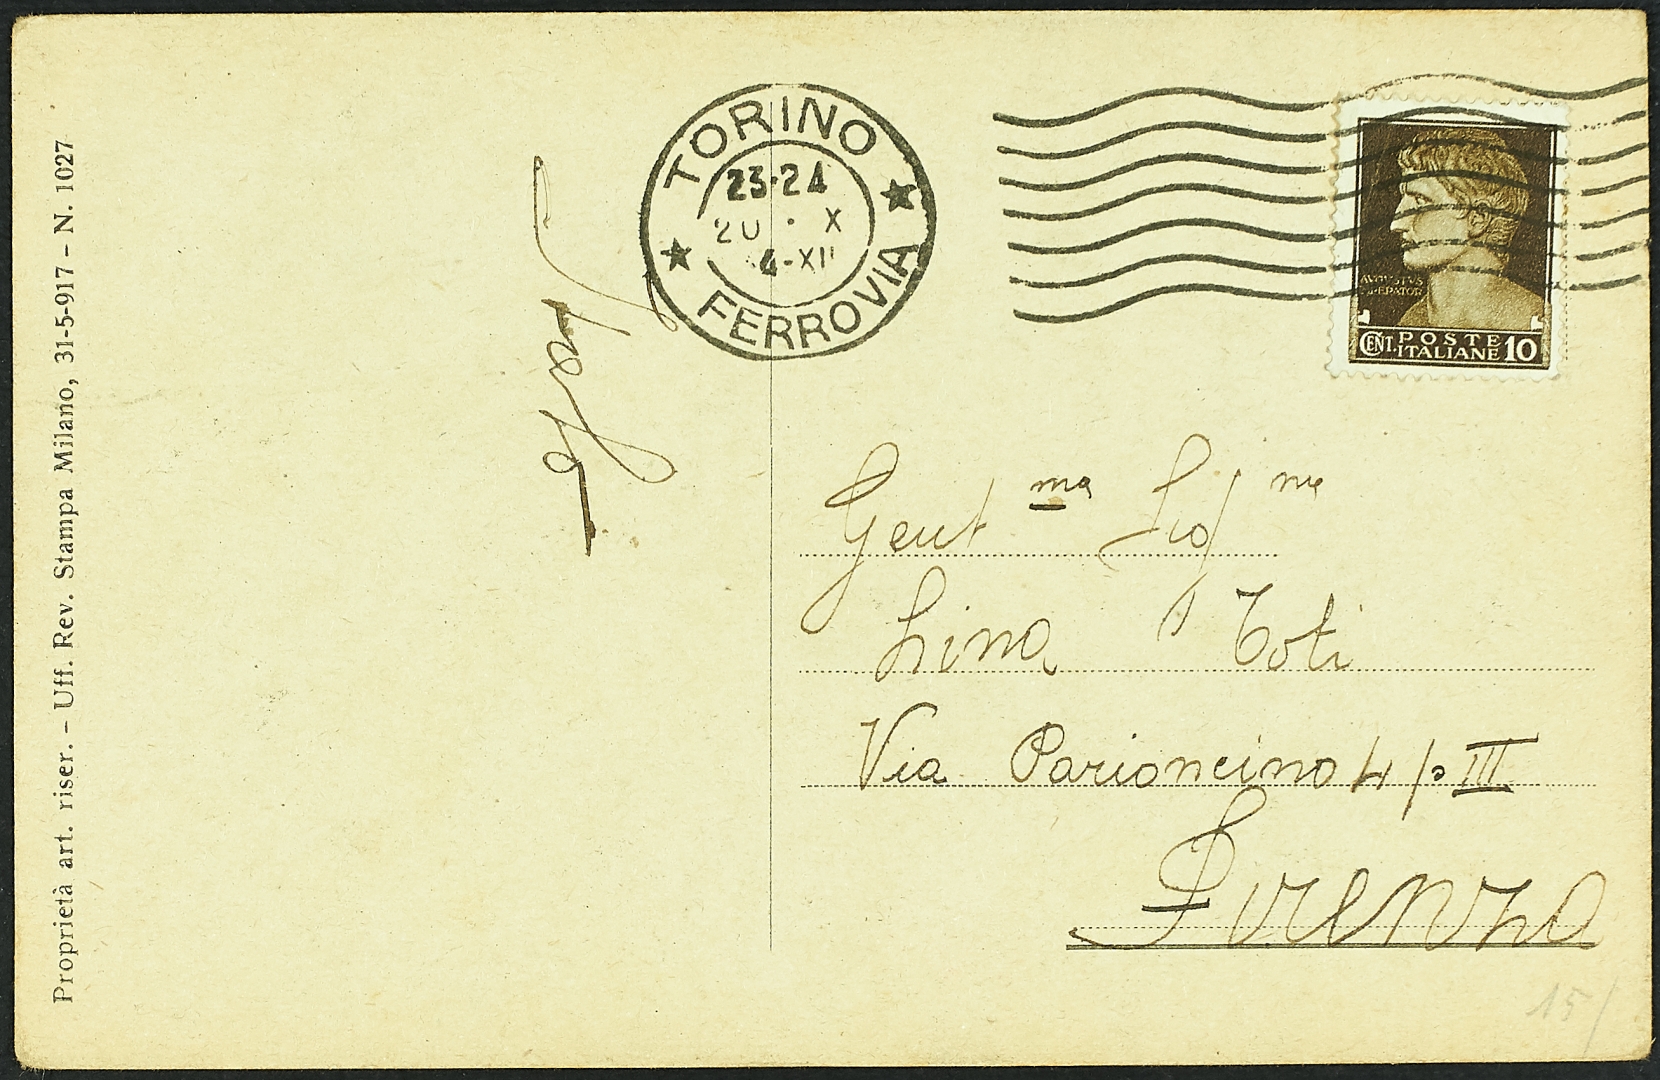 Proprietà art. riser. – Uff. Rev. Stampa Milano, 31-5-917 – N. 1027
TORINO
23-24
20 · X
4-XII
FERROVIA
AVGVSTVS
IMPERATOR
CENT. POSTE ITALIANE 10
Gent ma Sig na
Lina Toti
Via Parioncino 4 p. III
Firenze
15/